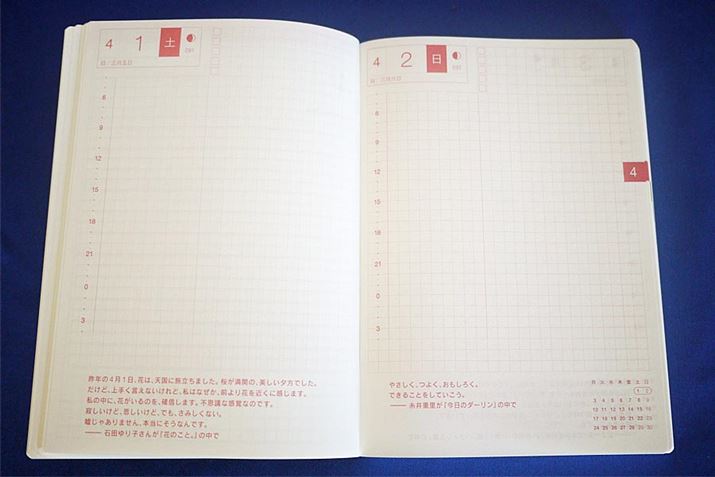 4 1 土
091
旧/三月五日
8
9
12
15
18
21
0
3
昨年の4月1日、花は、天国に旅立ちました。桜が満開の、美しい夕方でした。
だけど、上手く言えないけれど、私はなぜか、前より花を近くに感じます。
私の中に、花がいるのを、確信します。不思議な感覚なのです。
寂しいけど、悲しいけど、でも、さみしくない。
嘘じゃありません、本当にそうなんです。
―― 石田ゆり子さんが『花のこと。』の中で
4 2 日
092
旧/三月六日
4
9
12
15
18
21
0
3
やさしく、つよく、おもしろく。
できることをしていこう。
―― 糸井重里が『今日のダーリン』の中で
月 火 水 木 金 土 日
1 2
3 4 5 6 7 8 9
10 11 12 13 14 15 16
17 18 19 20 21 22 23
24 25 26 27 28 29 30